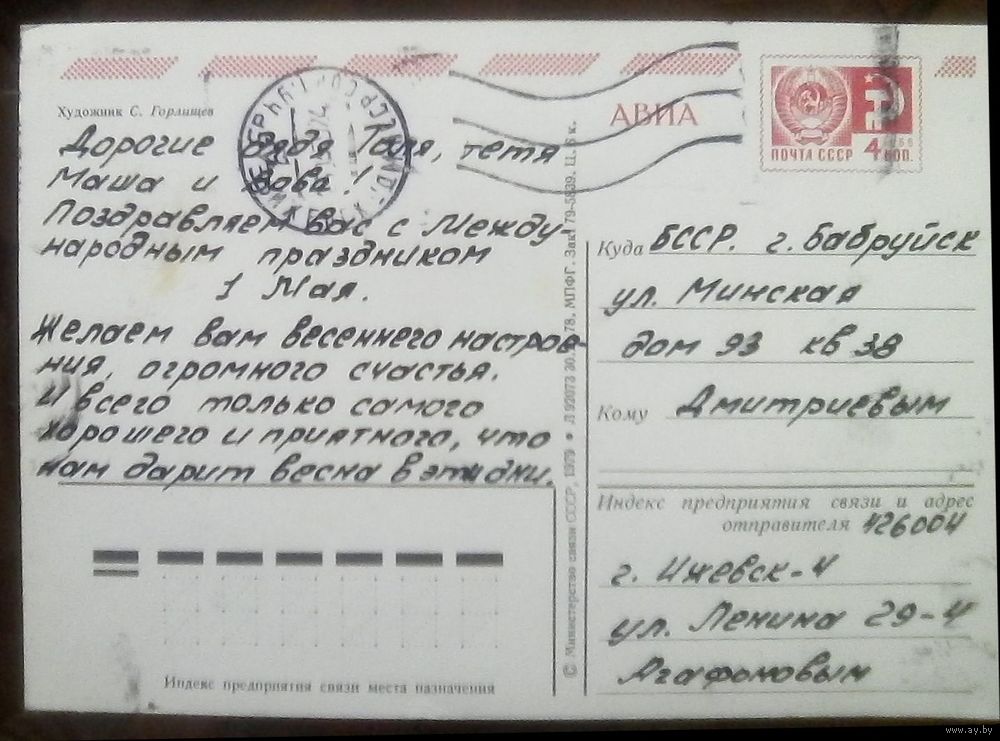 Художник С. Горлищев
АВИА
ПОЧТА СССР 4 КОП.
Дорогие дядя Толя, тетя
Маша и Вова!
Поздравляем вас с Между-
народным праздником
1 Мая.
Желаем вам весеннего настрое-
ния, огромного счастья.
И всего только самого
хорошего и приятного, что
нам дарит весна в эти дни.
Индекс предприятия связи места назначения
© Министерство связи СССР, 1979 • Л 92073 78. МПФГ. Зак. 79-5839. Ц. к.
Куда БССР. г. Бабруйск
ул. Минская
дом 93 кв 38
Кому Дмитриевым
Индекс предприятия связи и адрес
отправителя 426004
г. Ижевск-4
ул. Ленина 29-4
Агафоновым
www.ay.by